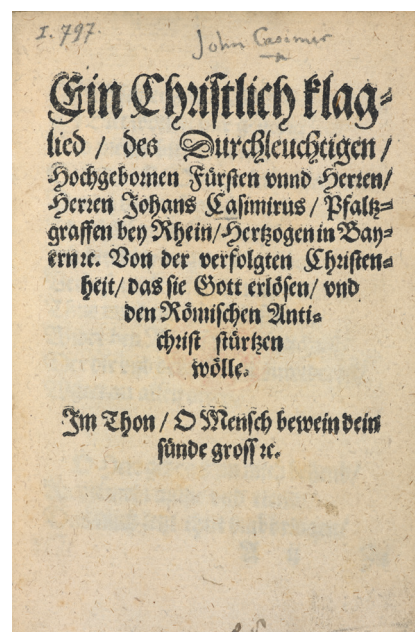 I. 797.
John Casimir
Ein Christlich klag⸗
lied / des Durchleuchtigen /
Hochgebornen Fürsten vnnd Herren/
Herren Johans Casimirus / Pfaltz⸗
graffen bey Rhein/Hertzogen in Bay⸗
ern ꝛc. Von der verfolgten Christen⸗
heit/ das sie Gott erlösen/ vnd
den Römischen Anti⸗
christ stürtzen
wölle.
Im Thon / O Mensch bewein dein
sünde gross ꝛc.